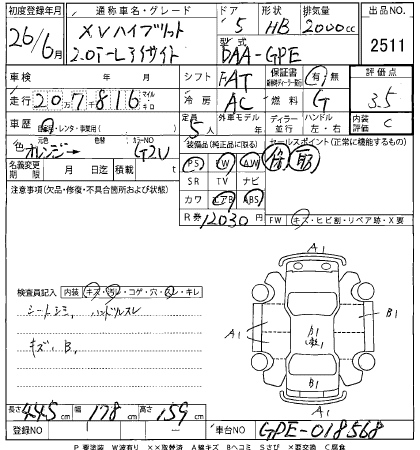 初度登録年月 通称車名・グレード ドア 形状 排気量 出品NO.
26年6月 XVハイブリット 5 HB 2000cc 2511
2.0i-L アイサイト 型式 DAA-GPE
車検 年 月 シフト FAT 保証書 有 無 評価点
走行 207816 マイル キロ 冷房 AC 燃料 G 3.5
車歴 自家用・レンタ・事業用( ) 定員 5人 外車モデル 年 ディーラー 並行 ハンドル 左・右 内装評価 C
色 元色 オレンジ→ 色替 カラーNO G2U 装備品(純正品に限る) セールスポイント(正常に機能するもの)
名義変更期限 月 日迄 積載 t PS PW AW
注意事項(欠品・修復・不具合箇所および状態) SR TV ナビ
カワ エアB ABS
R券 12030円 FW キズ・ヒビ割・リペア跡・X要
A1
検査員記入 内装 キズ・汚レ・コゲ・穴・スレ・キレ
シートシミ, ハンドルスレ
キズ、B,
A1 A1 B1 B1
B1
A1
長さ 445cm 幅 178cm 高さ 159cm
登録NO 車台NO GPE-018568
P 要塗装 W波有り ××取替済 A線キズ Bヘコミ Sさび ×要交換 C腐食